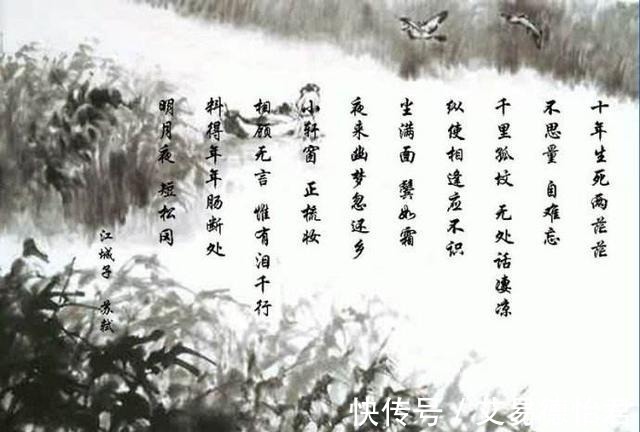 十年生死两茫茫
不思量 自难忘
千里孤坟 无处话凄凉
纵使相逢应不识
尘满面 鬓如霜
夜来幽梦忽还乡
小轩窗 正梳妆
相顾无言 惟有泪千行
料得年年肠断处
明月夜 短松冈
江城子 苏轼
快传号 /